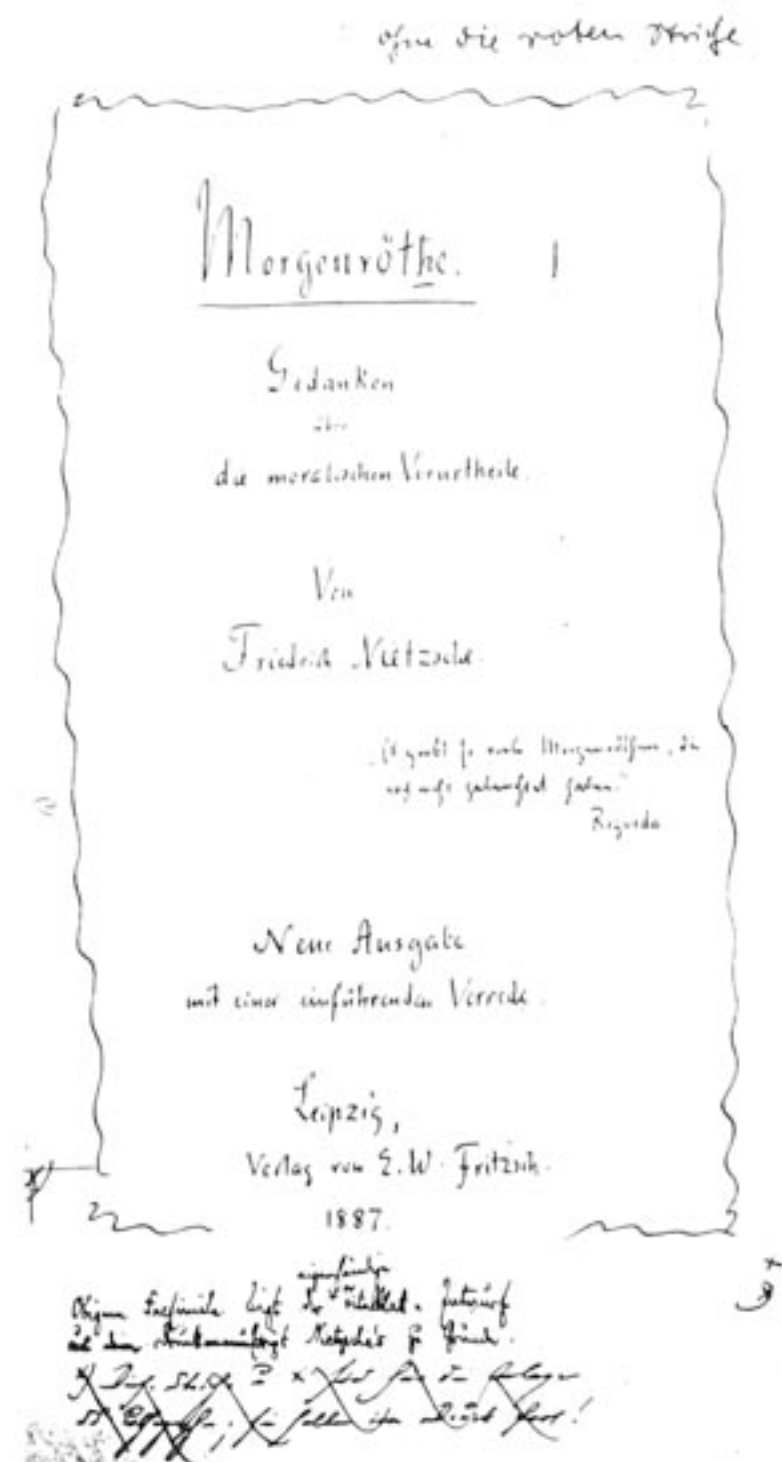 ohne die roten Striche
Morgenröthe. I
Gedanken
über
die moralischen Vorurtheile.
Von
Friedrich Nietzsche.
„Es giebt so viele Morgenröthen, die
noch nicht geleuchtet haben.“
Rigveda
Neue Ausgabe
mit einer einführenden Vorrede.
Leipzig,
Verlag von E. W. Fritzsch.
1887.
eigenhändige
Obigem Facsimile liegt der Titelblatt-Entwurf
aus dem Druckmanuskript Nietzsche's zu Grunde.